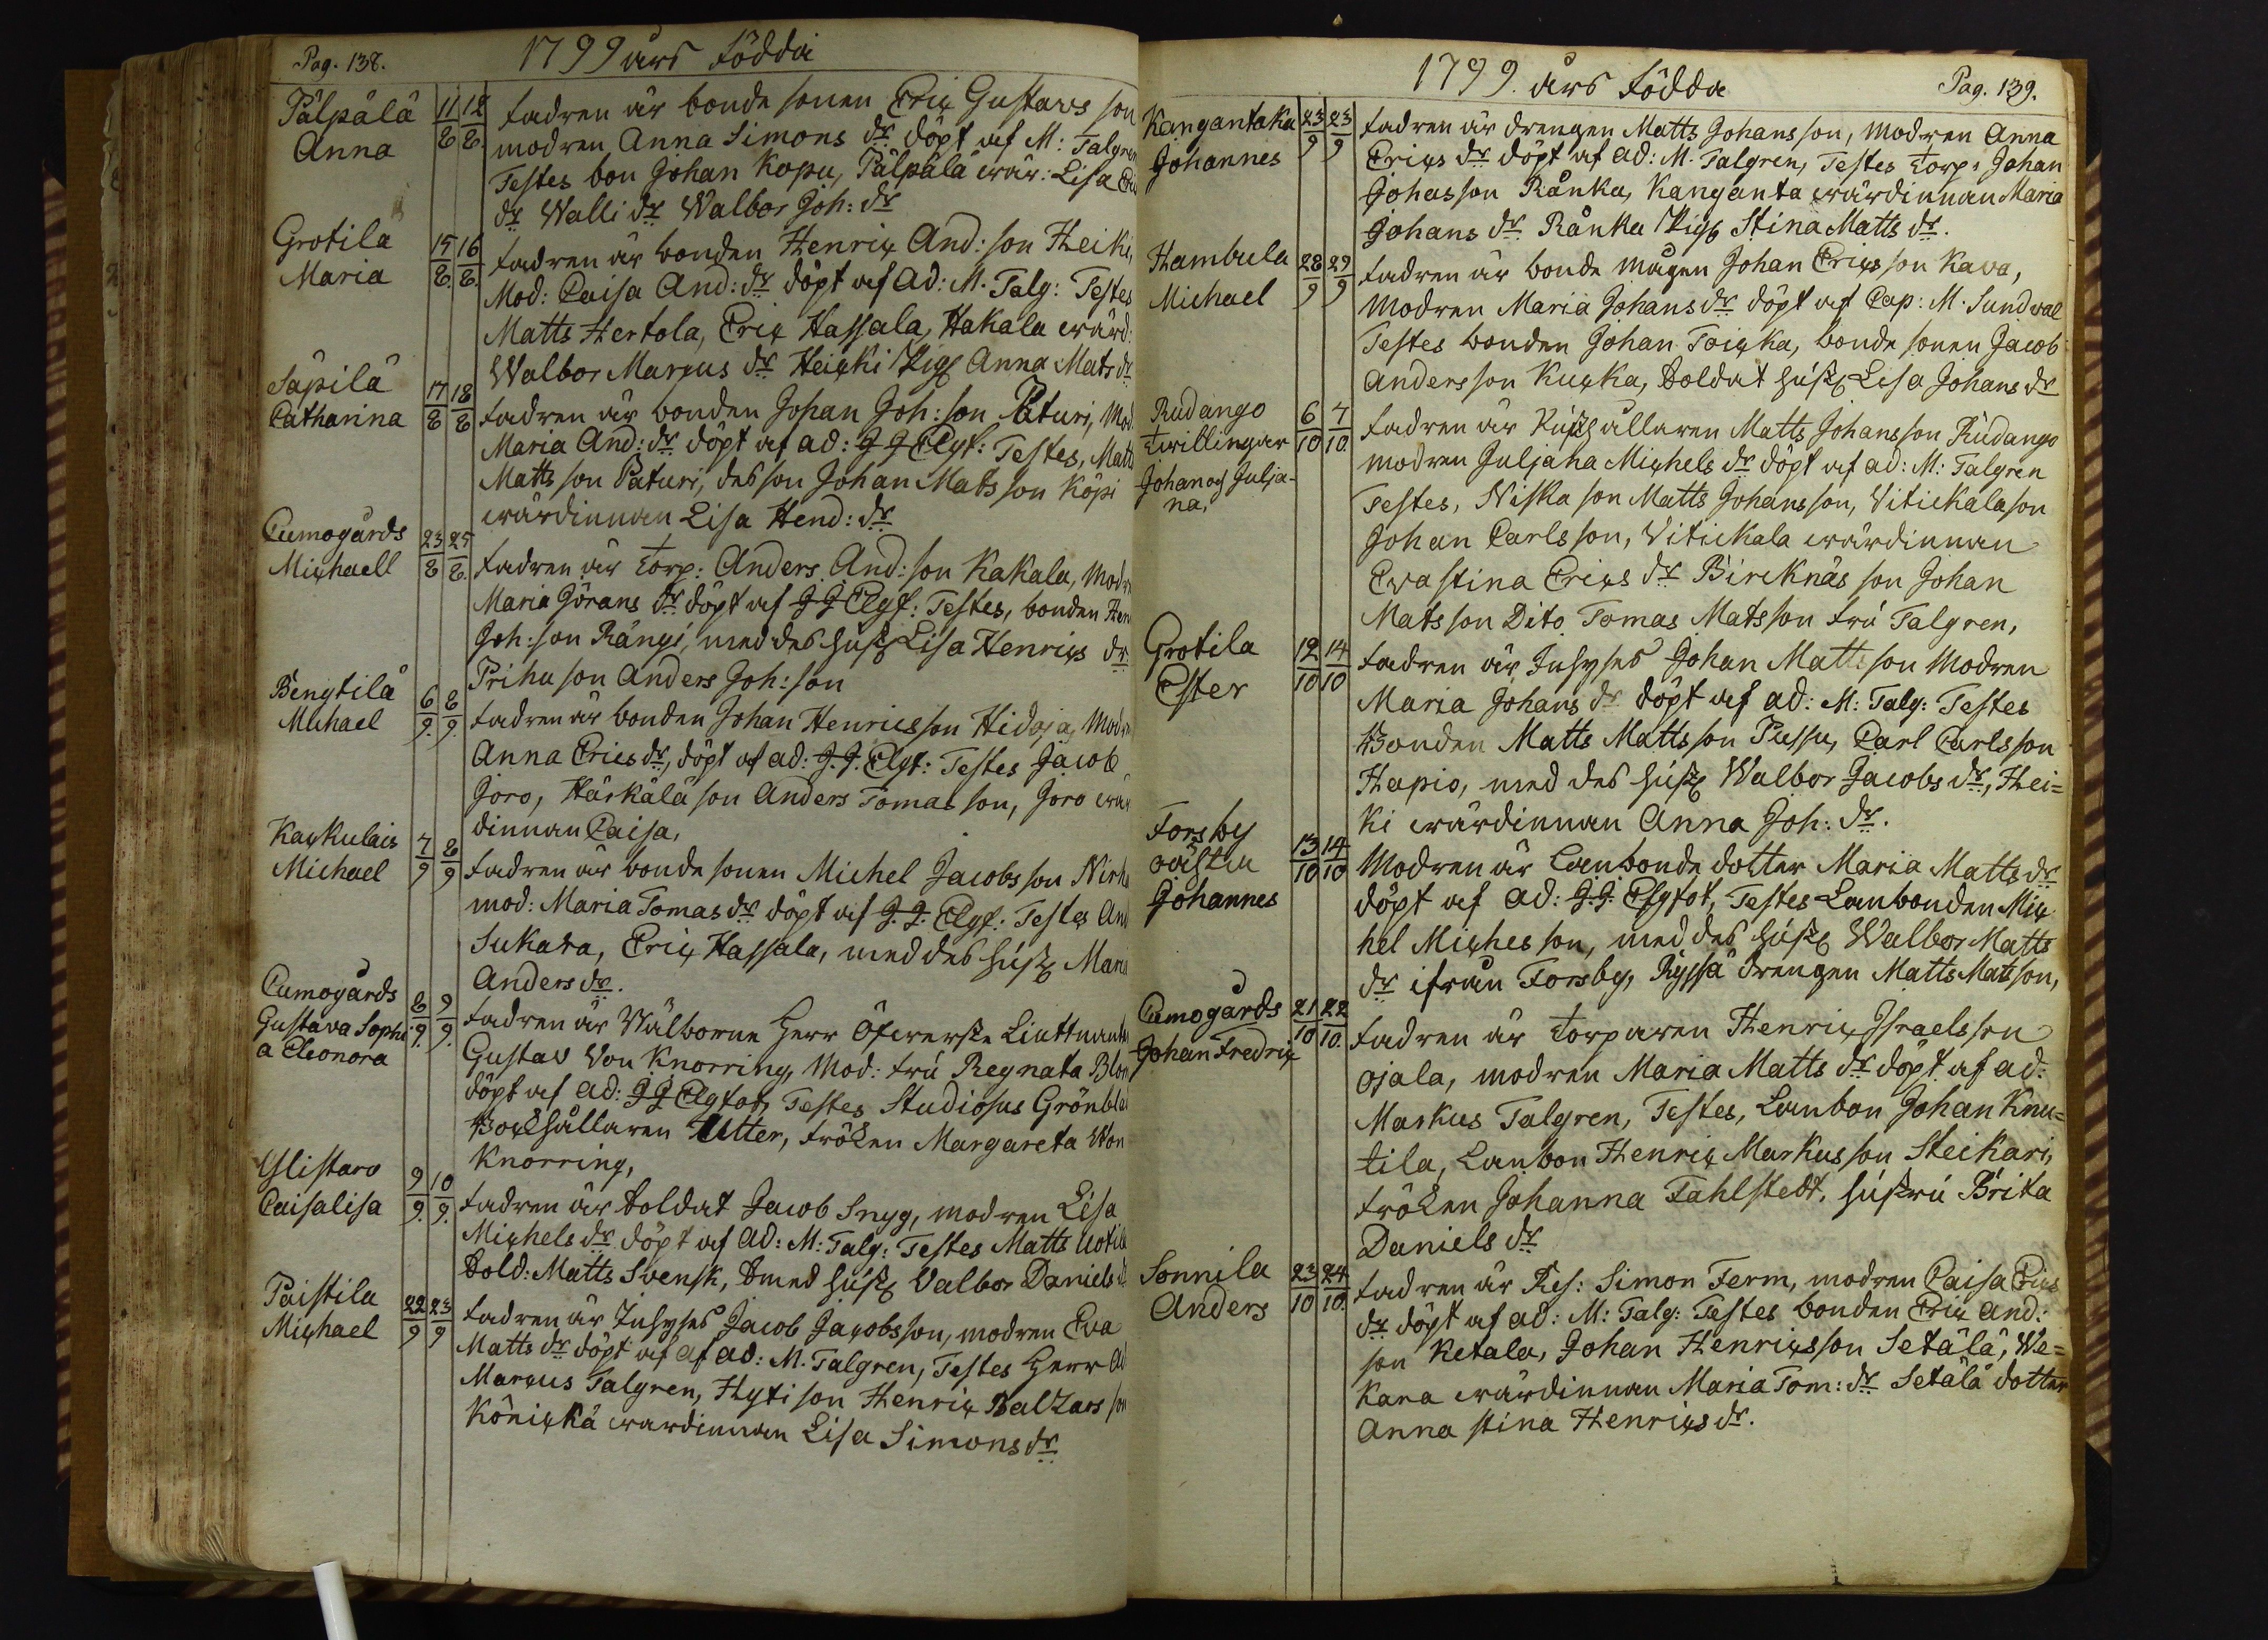 Pag. 138.
1799 års födda
Pälpälä 11/8 12/8 fadren är bonde sonen Eric Gustavs son
Anna modren Anna Simons dr döpt af M: Talgren
Testes bon Johan Kopu, Pälpälä wär: Lisa
dr Walli dr Walbor Joh: dr
Grotila 15/8. 16/8. fadren är bonden Henric And: son Heiki,
Maria Mod: Caisa And: dr döpt af Ad: M. Talg: Testes
Matts Hertola, Eric Hassala, Hakala wärd:
Walbor Marcus dr Heicki Pig Anna Mats dr
Säpilä 17/8 18/8 fadren är bonden Johan Joh: son Paturi, Mod
Catharina Maria And: dr döpt af ad: J J Elgf: Testes, Matts
Matts son Paturi, des son Johan Mats son Köpi
wärdinnan Lisa Hend: dr
Cumogårds 23/8 25/8. fadren är torp: Anders And: son Kakala, Modr
Michaell Maria Görans dr döpt af J J Elgf: Testes, bonden Hen
Joh: son Rängi, med des hust Lisa Henrics dr
Prihu son Anders Joh: son
Bengtilä 6/9. 8/9. fadren är bonden Johan Henricsson Hidoja, Modr
Michael Anna Erics dr, döpt af ad: J. J. Elgf: Testes Jacob
Joro, Härkälä son Anders Tomas son, Joro wär
dinnan Caisa,
Kackulais 7/9 8/9 fadren är bonde sonen Michel Jacobs son
Michael mod: Maria Tomas dr döpt af J. J. Elgf: Testes And
Sukava, Eric Hassala, med des hust Maria
Anders dr.
Cumogårds 8/9. 9/9. fadren är Wälborne Herr öfwerste Liuttnanten
Gustava Sophi Gustav Von Knorring, Mod: fru Regnata
a Eleonora döpt af ad: J J Elgfot, Testes Studiosus
Bockhållaren Utter, fröken Margareta Von
Knorring,
Ylistaro 9/9. 10/9. fadren är Soldat Jacob Snyg, modren Lisa
Caisalisa Michels dr döpt af Ad: M: Talg: Testes Matts Uotila
Sold: Matts Svensk, med hust Valbor Daniels
Paistila 22/9 23/9 fadren är Inhyses Jacob Jacobsson, modren Eva
Michael Matts dr döpt af af ad: M. Talgren, Testes Herr Ad
Marcus Talgren, Hyti son Henric Baltzars son
Könickä wardinnan Lisa Simons dr
1799. års födda
Pag. 139.
Kangantaka 23/9 23/9 fadren är drengen Matts Johans son, modren Anna
Johannes Erics dr döpt af ad: M. Talgren, Testes torp: Johan
Johasson Ränka, Kanganta wärdinnan Maria
Johans dr Ränka Pig Stina Matts dr.
Hambula 28/9 29/9 fadren är bonde mågen Johan Erics son Kava,
Michael Modren Maria Johans dr döpt af Cap: M. Sundwal
Testes bonden Johan Toicka, bonde sonen Jacob
Anders son Kucka, Soldat hust Lisa Johans dr
Rudango 6/10 7/10. fadren är Matts Johans son Rudango
twillingar modren Juljana Michels dr döpt af ad: M: Talgren
Johan och Julja- Testes, Niska son Matts Johans son, Vitickala son
na, Johan Carls son, Vitickala wärdinnan
Evastina Erics dr Bircknäs son Johan
Mats son Dito Tomas Mats son fru Talgren,
Grotila 12/10 14/10 fadren är Inhyses Johan Matts son Modren
Ester Maria Johans dr döpt af ad: M: Talg: Testes
Bonden Matts Matts son Pussu, Carl Carls son
Hapio, med des hust Walbor Jacobs dr, Hei=
ki wärdinnan Anna Joh: dr.
Forsby 13/10 14/10 Modren är Lanbonde dotter Maria Matts dr
oästu döpt af ad: J. J. Elgfot, Testes Lanbonden Mic
Johannes hel Miches son, med des hust Walbor Matts
dr ifrån Forsby, Ryssä drengen Matts Matsson,
Cumogårds 21/10 22/10. fadren är torparen Henric Israels son
Johan Fredric Ojala, modren Maria Matts dr döpt af ad:
Markus Talgren, Testes, Lanbon Johan Knu=
tila, Lanbon Henric Markus son Steikari,
fröken Johanna Fahlstedt, hustru Brita
Daniels dr
Sonnila 23/10 24/10. fadren är Res: Simon Ferm, modren Caisa Erics
Anders dr döpt af ad: M: Talg: Testes bonden Eric And:
son Ketala, Johan Henricsson Setälä, We=
kara wärdinnan Maria Tom: dr Setälä dotter
Anna stina Henrics dr.